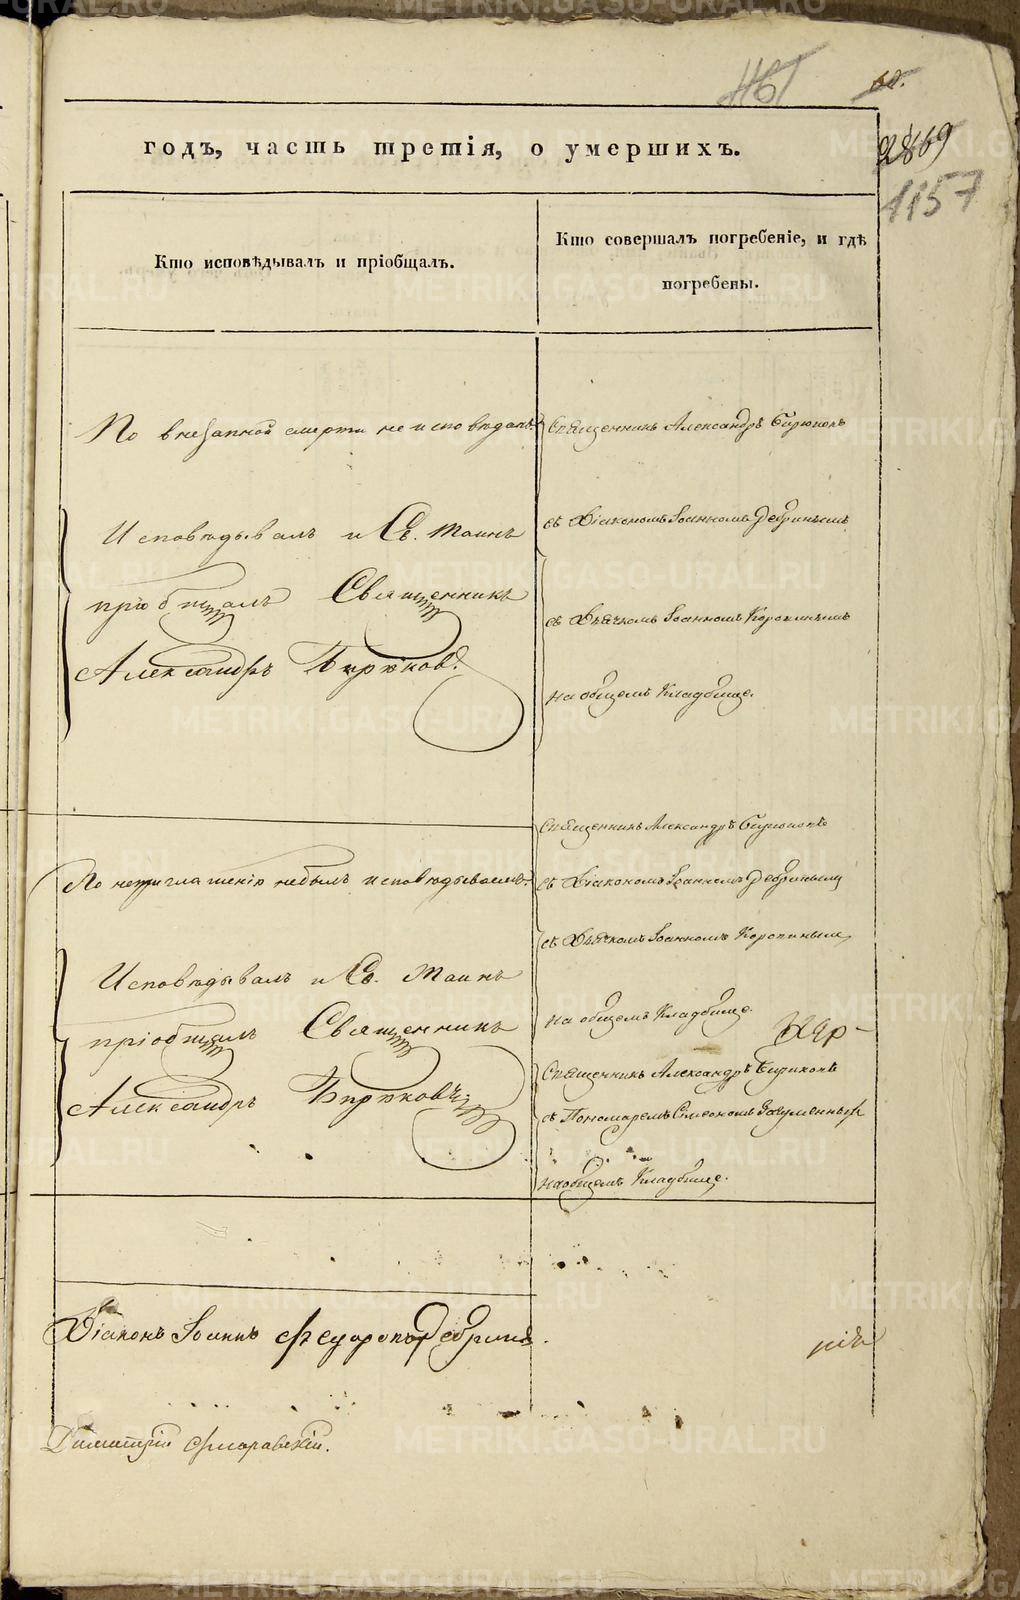 1161
60.
годъ, часть третія, о умершихъ.
2869
1157
Кто исповѣдывалъ и пріобщалъ.
Кто совершалъ погребеніе, и гдѣ
погребены.
По внезапной смерти не исповѣданъ
Исповѣдывалъ и Св. Таинъ
пріобщалъ Священникъ
Александръ Бирюковъ.
Священникъ Александръ Бирюковъ
съ Діакономъ Іоанномъ Дебринымъ
съ Дьячкомъ Іоанномъ Коропинымъ
на общемъ Кладбище.
По неприглашенію небылъ исповѣдываемъ.
Священникъ Александръ Бирюковъ
съ Діакономъ Іоанномъ Дебринымъ
съ Дьячкомъ Іоанномъ Коропинымъ
на общемъ Кладбище.
Исповѣдывалъ и Св. Таинъ
пріобщалъ Священникъ
Александръ Бирюковъ
Священникъ Александръ Бирюковъ
съ Пономаремъ Симеономъ
на общемъ Кладбище.
Діаконъ Іоаннъ Федоровъ Дебринъ.
Димитрій Флоравскій.
METRIKI.GASO-URAL.RU